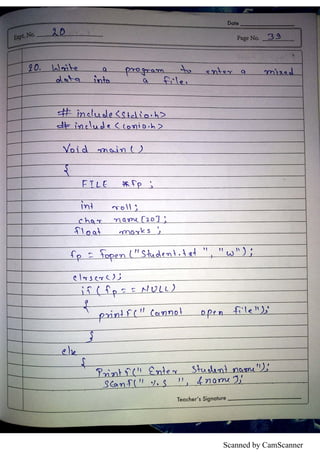 Date
Expt. No. 20
Page No. 39
20. Write a program to enter a mixed
data into a file.
# include <Stdio.h>
# include <conio.h>
Void main ( )
{
FILE *fp ;
int roll ;
char name [20] ;
float marks ;
fp = fopen ("Student.txt ", "w") ;
clrscr() ;
if ( fp = = NULL)
{
printf (" Cannot open file");
}
else
{
Printf (" Enter Student name");
Scanf (" %s ", &name );
Teacher's Signature
Scanned by CamScanner